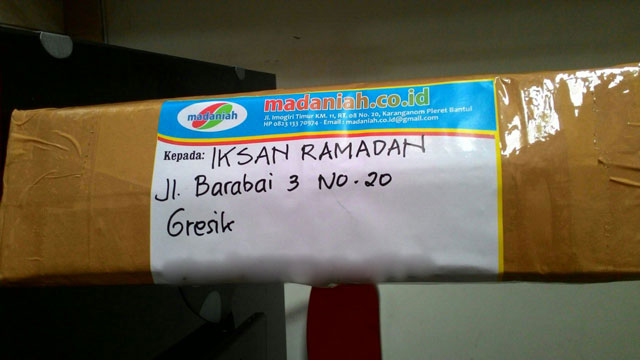 madaniah
madaniah.co.id
Jl. Imogiri Timur KM. 11, RT. 08 No. 20, Karanganom Pleret Bantul
HP 0823 133 70974 - Email : madaniah.co.id@gmail.com
Kepada: IKSAN RAMADAN
Jl. Barabai 3 No. 20
Gresik